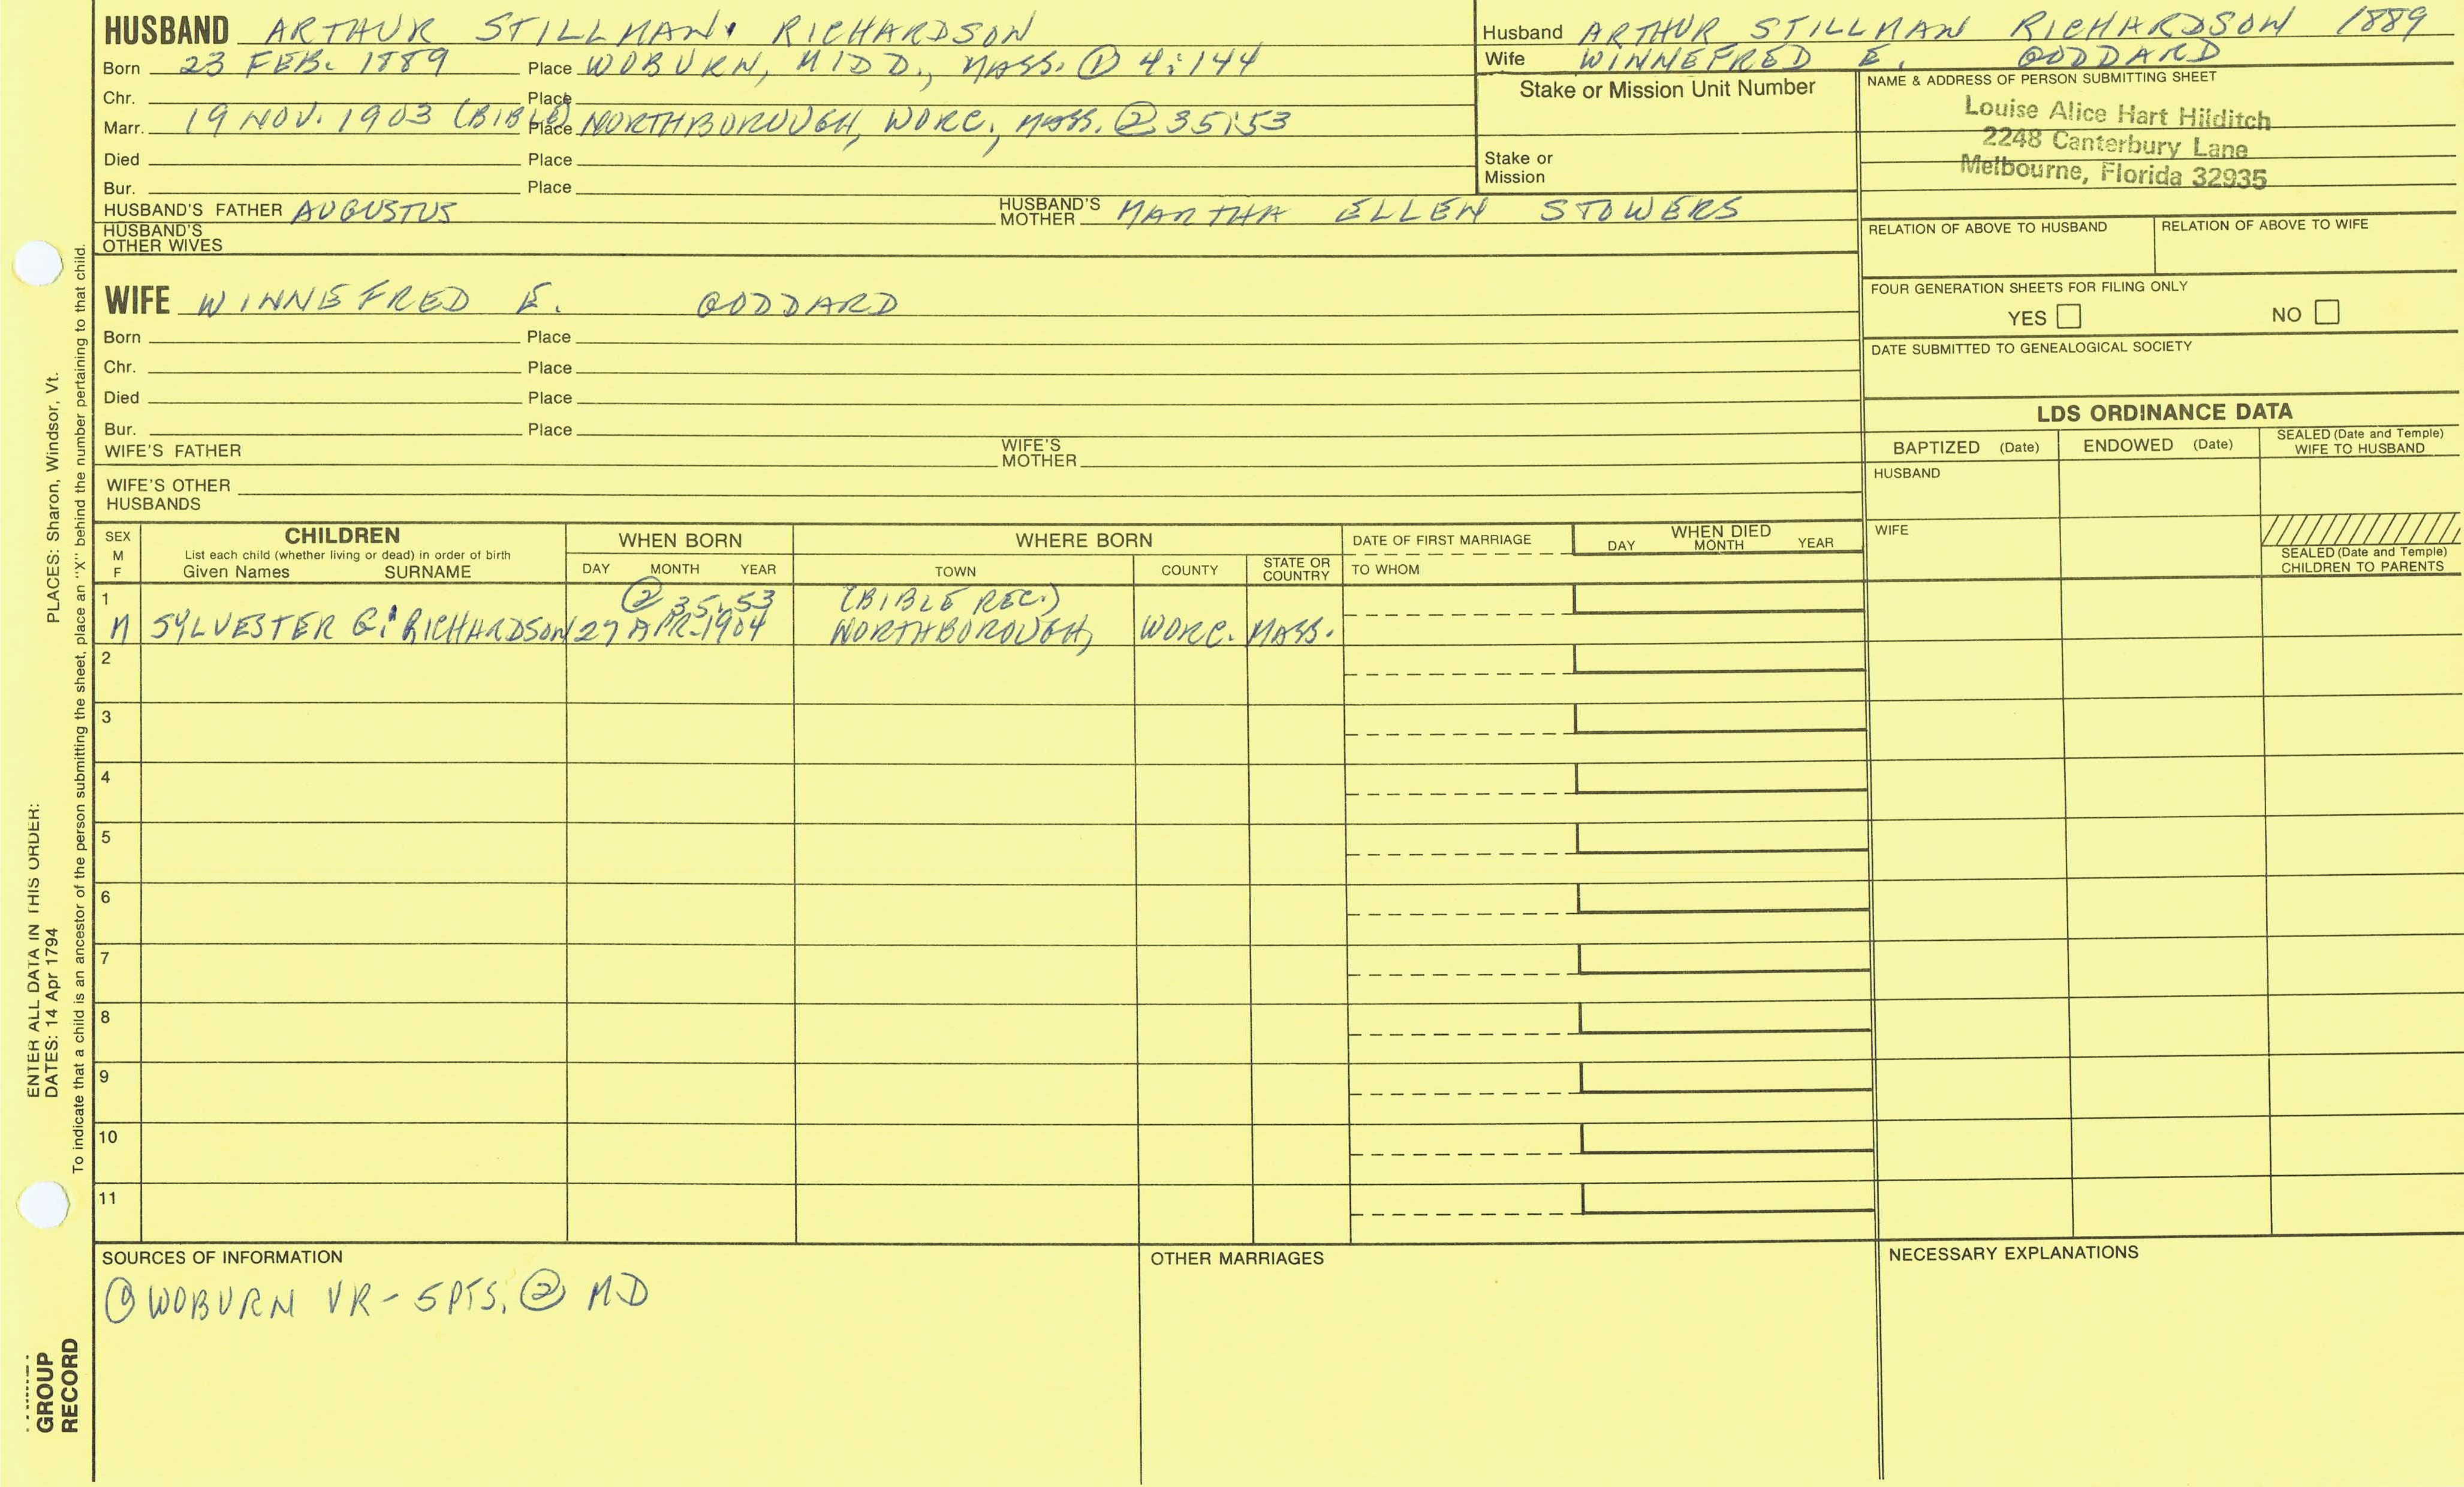 HUSBAND ARTHUR STILLMAN RICHARDSON
Born 23 FEB. 1889 Place WOBURN, MIDD., MASS. ① 4:144
Chr. Place
Marr. 19 NOV. 1903 (BIBLE) Place NORTHBOROUGH, WORC., MASS. ② 35:53
Died Place
Bur. Place
HUSBAND'S FATHER AUGUSTUS HUSBAND'S MOTHER MARTHA ELLEN STOWERS
HUSBAND'S OTHER WIVES
Husband ARTHUR STILLMAN RICHARDSON 1889
Wife WINNEFRED E. GODDARD
Stake or Mission Unit Number
Stake or Mission
NAME & ADDRESS OF PERSON SUBMITTING SHEET
Louise Alice Hart Hilditch
2248 Canterbury Lane
Melbourne, Florida 32935
RELATION OF ABOVE TO HUSBAND RELATION OF ABOVE TO WIFE
FOUR GENERATION SHEETS FOR FILING ONLY
YES NO
DATE SUBMITTED TO GENEALOGICAL SOCIETY
WIFE WINNEFRED E. GODDARD
Born Place
Chr. Place
Died Place
Bur. Place
WIFE'S FATHER WIFE'S MOTHER
WIFE'S OTHER HUSBANDS
LDS ORDINANCE DATA
BAPTIZED (Date) ENDOWED (Date) SEALED (Date and Temple) WIFE TO HUSBAND
HUSBAND
WIFE
SEALED (Date and Temple) CHILDREN TO PARENTS
SEX M F
CHILDREN
List each child (whether living or dead) in order of birth
Given Names SURNAME
WHEN BORN
DAY MONTH YEAR
WHERE BORN
TOWN COUNTY STATE OR COUNTRY
DATE OF FIRST MARRIAGE
TO WHOM
WHEN DIED
DAY MONTH YEAR
1 ② 35:53 (BIBLE REC.)
M SYLVESTER G. RICHARDSON 27 APR. 1904 NORTHBOROUGH, WORC. MASS.
2
3
4
5
6
7
8
9
10
11
SOURCES OF INFORMATION
① WOBURN VR - 5 PTS. ② MD
OTHER MARRIAGES
NECESSARY EXPLANATIONS
ENTER ALL DATA IN THIS ORDER:
DATES: 14 Apr 1794 PLACES: Sharon, Windsor, Vt.
To indicate that a child is an ancestor of the person submitting the sheet, place an "X" behind the number pertaining to that child.
GROUP
RECORD